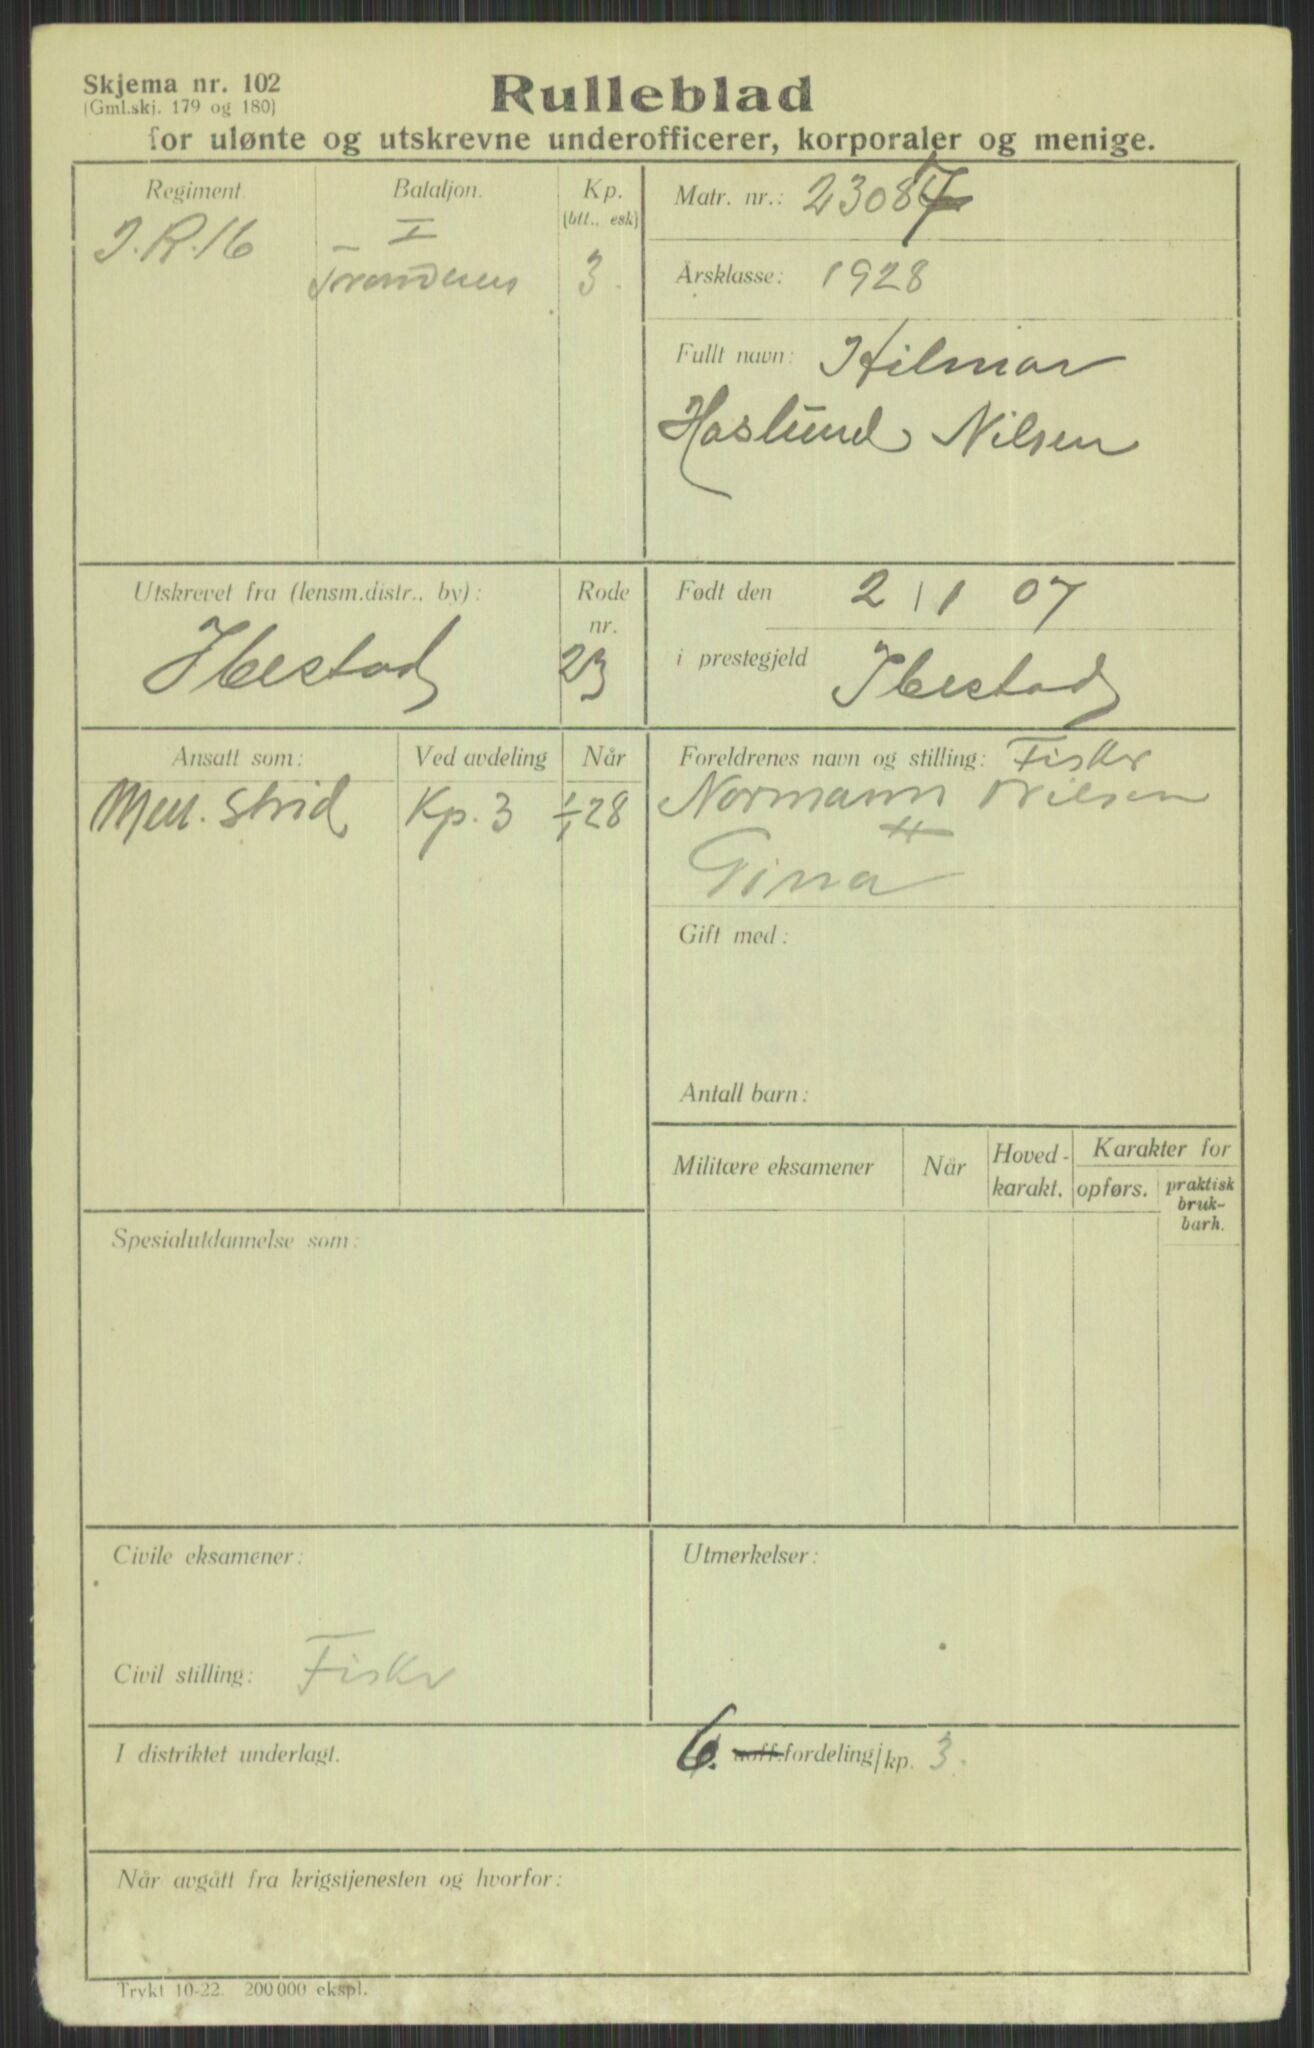 Skjema nr. 102
(Gml.skj. 179 og 180)
Rulleblad
for ulønte og utskrevne underofficerer, korporaler og menige.
Regiment.
Bataljon.
Kp.
(btt., esk)
I.R.16
I
Trondenes
3.
Matr. nr.: 23087
Årsklasse: 1928
Fullt navn: Hilmar
Haslund Nilsen
Utskrevet fra (lensm.distr., by):
Rode
nr.
Ibestad
23
Født den 2/1 07
i prestegjeld Ibestad
Ansatt som:
Ved avdeling
Når
Men. strid
Kp. 3
1/1 28
Foreldrenes navn og stilling: Fiskr
Normann Nilsen
Gina
Gift med:
Antall barn:
Militære eksamener
Når
Hoved-
karakt.
Karakter for
opførs.
praktisk
bruk-
barh.
Spesialutdannelse som:
Civile eksamener:
Utmerkelser:
Civil stilling: Fiskr
I distriktet underlagt.
6. uoff.fordeling/kp. 3.
Når avgått fra krigstjenesten og hvorfor:
Trykt 10-22. 200 000 ekspl.